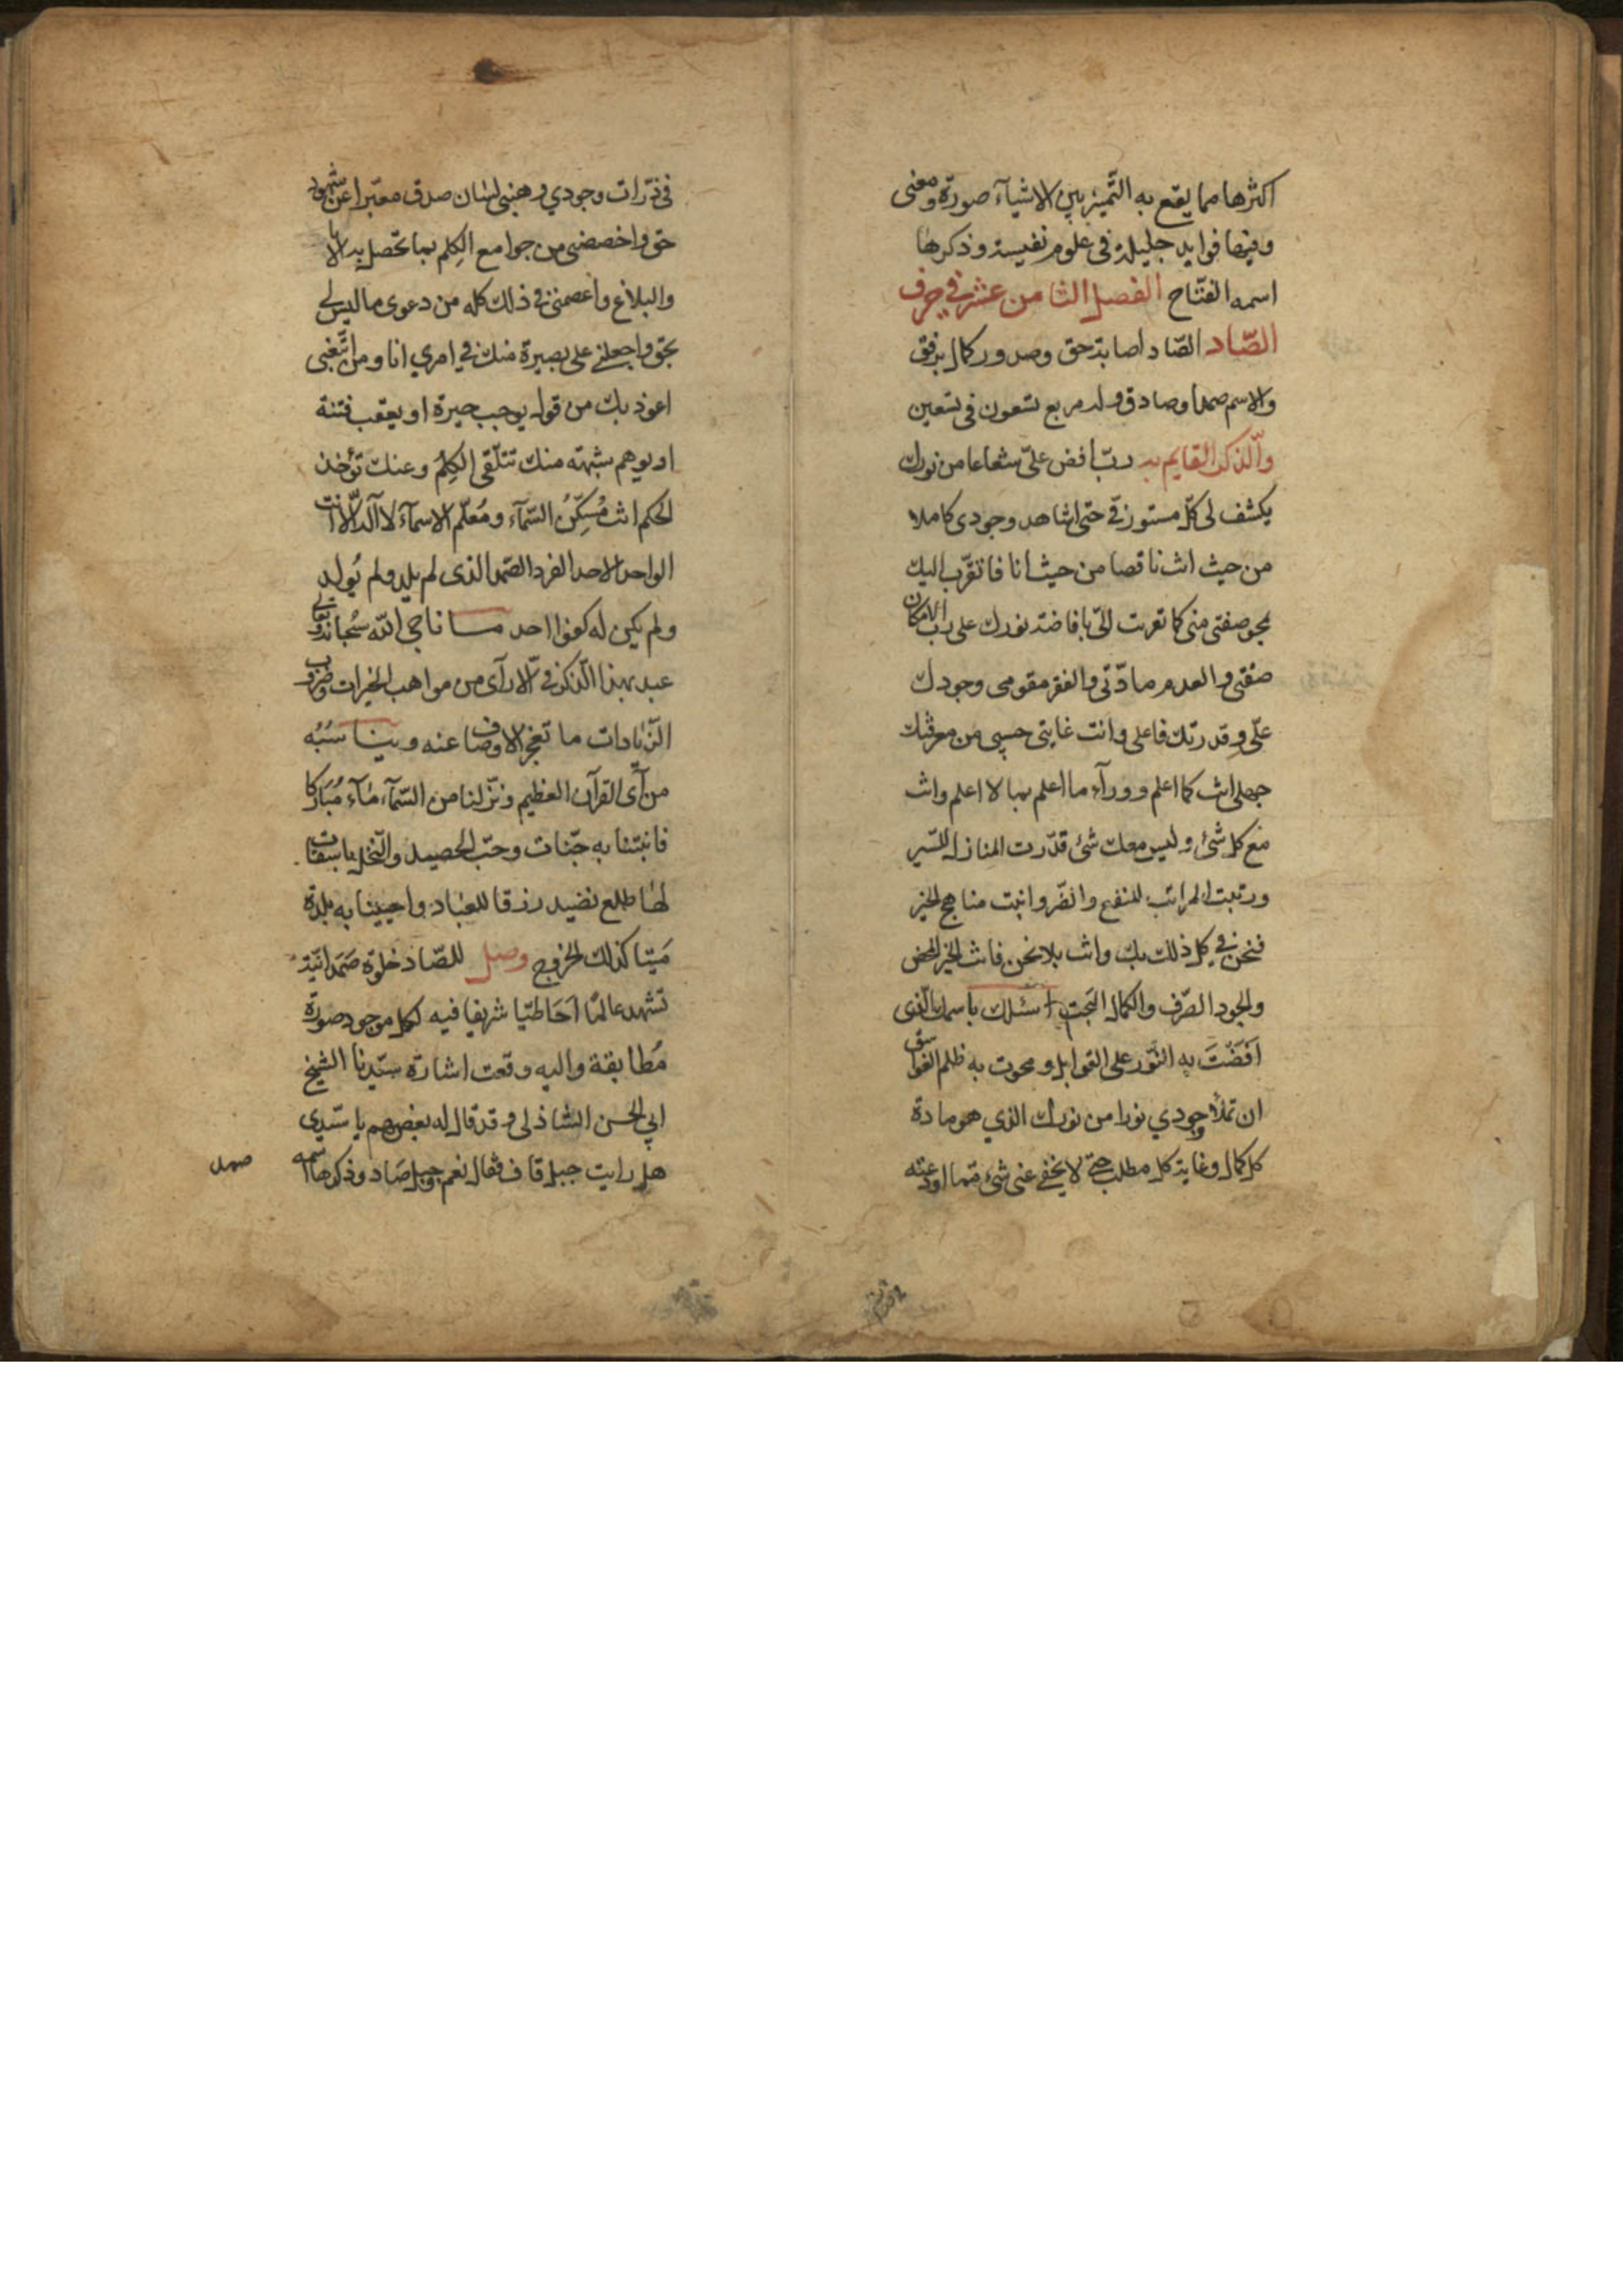 اكثرها مما يقع به التّميز بين الاشيآء صورة ومعنى
وفيها فوايد جليلة فى علوم نفيسة وذكرها
اسمه الفتّاح الفصل الثامن عشر في حرف
الصّاد الصّاد اصابة حق وصدور كمال برفق
والاسم صمد وصادق وله مربع تسعون فى تسعين
والّذكر القايم به ربّ افض علىّ شعاعا من نورك
يكشف لى كلّ مستور فىّ حتى اشاهد وجودى كاملا
من حيث انت ناقصا من حيث انا فاتقرّب اليك
بمحو صفتى منى كما تقربت الىّ بافاضة نورك علىّ ربّ الامكان
صفتى والعدم مادّتى والفقر مقومى وجودك
علّى وقدرتك فاعلى وانت غايتى حسبى من معرفتك
جهلى انت كما اعلم وورآء ما اعلم بما لا اعلم وانت
مع كل شئ وليس معك شئ قدّرت المنازل للسّير
ورتبت المراتب للنفع والضّر واثبت مناهج الخير
فنحن في كل ذلك بك وانت بلا نحن فانت الخير المحض
والجود الصّرف والكمال البحت اسئلك باسمك الّذى
اَفَضْتَ به النّور على القوابل ومحوت به ظلم الغواسق
ان تملأ وجودي نورا من نورك الذي هو مادة
كل كمال وغاية كل مطلب حتى لا يخفى عنى شئ مما اودعته
فى ذرّات وجودي وهبنى لسان صدق معبّرا عن شهود
حق واخصصنى من جوامع الكلِم بما تحصل به الابانة
والبلاغ واعصمنى فى ذلك كله من دعوى ما ليس لى
بحق واجعلنى على بصيرة منك في امري انا ومن اتّبعنى
اعوذ بك من قول يوجب حيرة او يعقب فتنة
او يوهم شبهة منك تتلّقى الكِلَم وعنك تؤخذ
الحكم انت مُسكِّنُ السّمآء ومُعلّم الاسمآء لا اله الّا انت
الواحد الاحد الفرد الصّمد الذى لم يلد ولم يُولد
ولم يكن له كفوا احد ما ناجى الله سُبحانه وتعالى
عبد بهذا الّذكر الّا رآى من مواهب الخيرات وضروب
الزّيادات ما تعجز الاوصاف عنه ويناسبُه
من آى القرآن العظيم ونزّلنا من السّمآء مآء مُبَاركا
فانبتنا به جنّات وحبّ الحصيد والنّخل باسقات
لها طلع نضيد رزقا للعباد واحيينا به بلدة
مَيتا كذلك الخروج وصل للصّاد خلوة صَمَدانيّة
تشهد عالمًا اَحَاطيّا شريفا فيه لكل موجود صورة
مُطابقة واليه وقعت اشارة سيّدنا الشيخ
ابي الحسن الشاذلى وقد قال له بعضهم يا سيّدى
هل رايت جبل قاف فقال نعم وجبل صَاد وذكرها اسمه
صمد